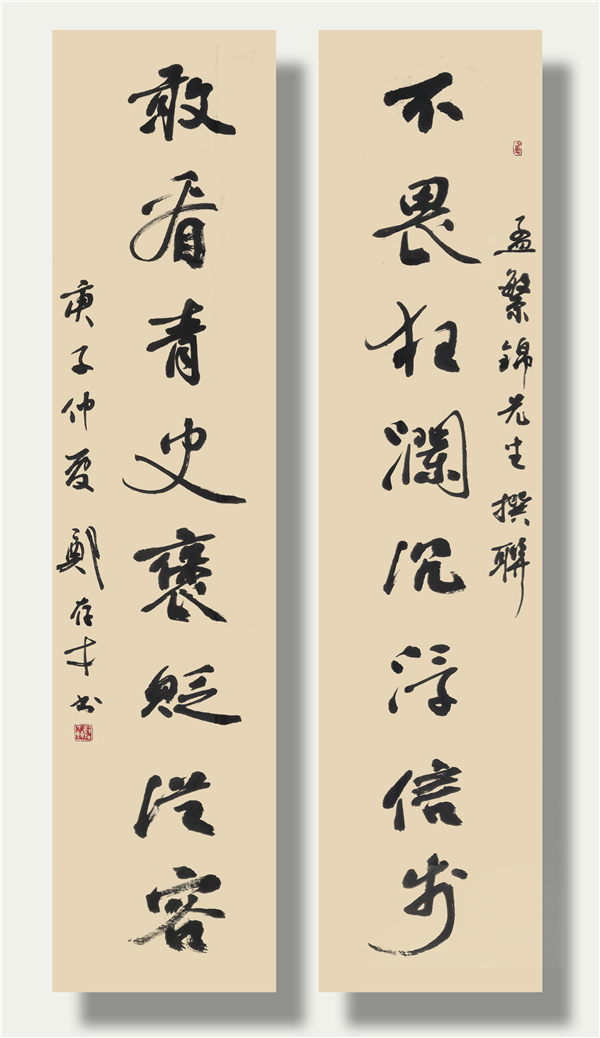 孟繁錦先生撰聯
不畏狂瀾沉浮信步
敢看青史褒貶從容
庚子仲夏鄭存才书